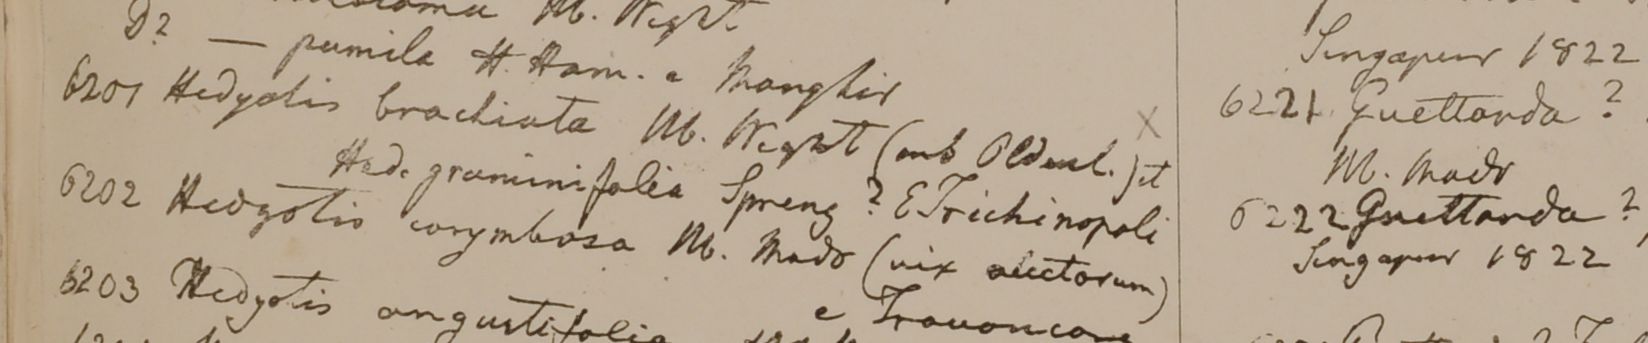 Hb. Wight
D? — pumila H. Ham. e Monghir
6201 Hedyotis brachiata Hb. Wight (sub Oldenl.) et
Hed. graminifolia Spreng? E Trichinopoli
6202 Hedyotis corymbosa Hb. Madr (vix auctorum)
e Travancore
6203 Hedyotis angustifolia
Singapur 1822
6221 Guettarda?
Hb. Madr
6222 Guettarda?
Singapur 1822